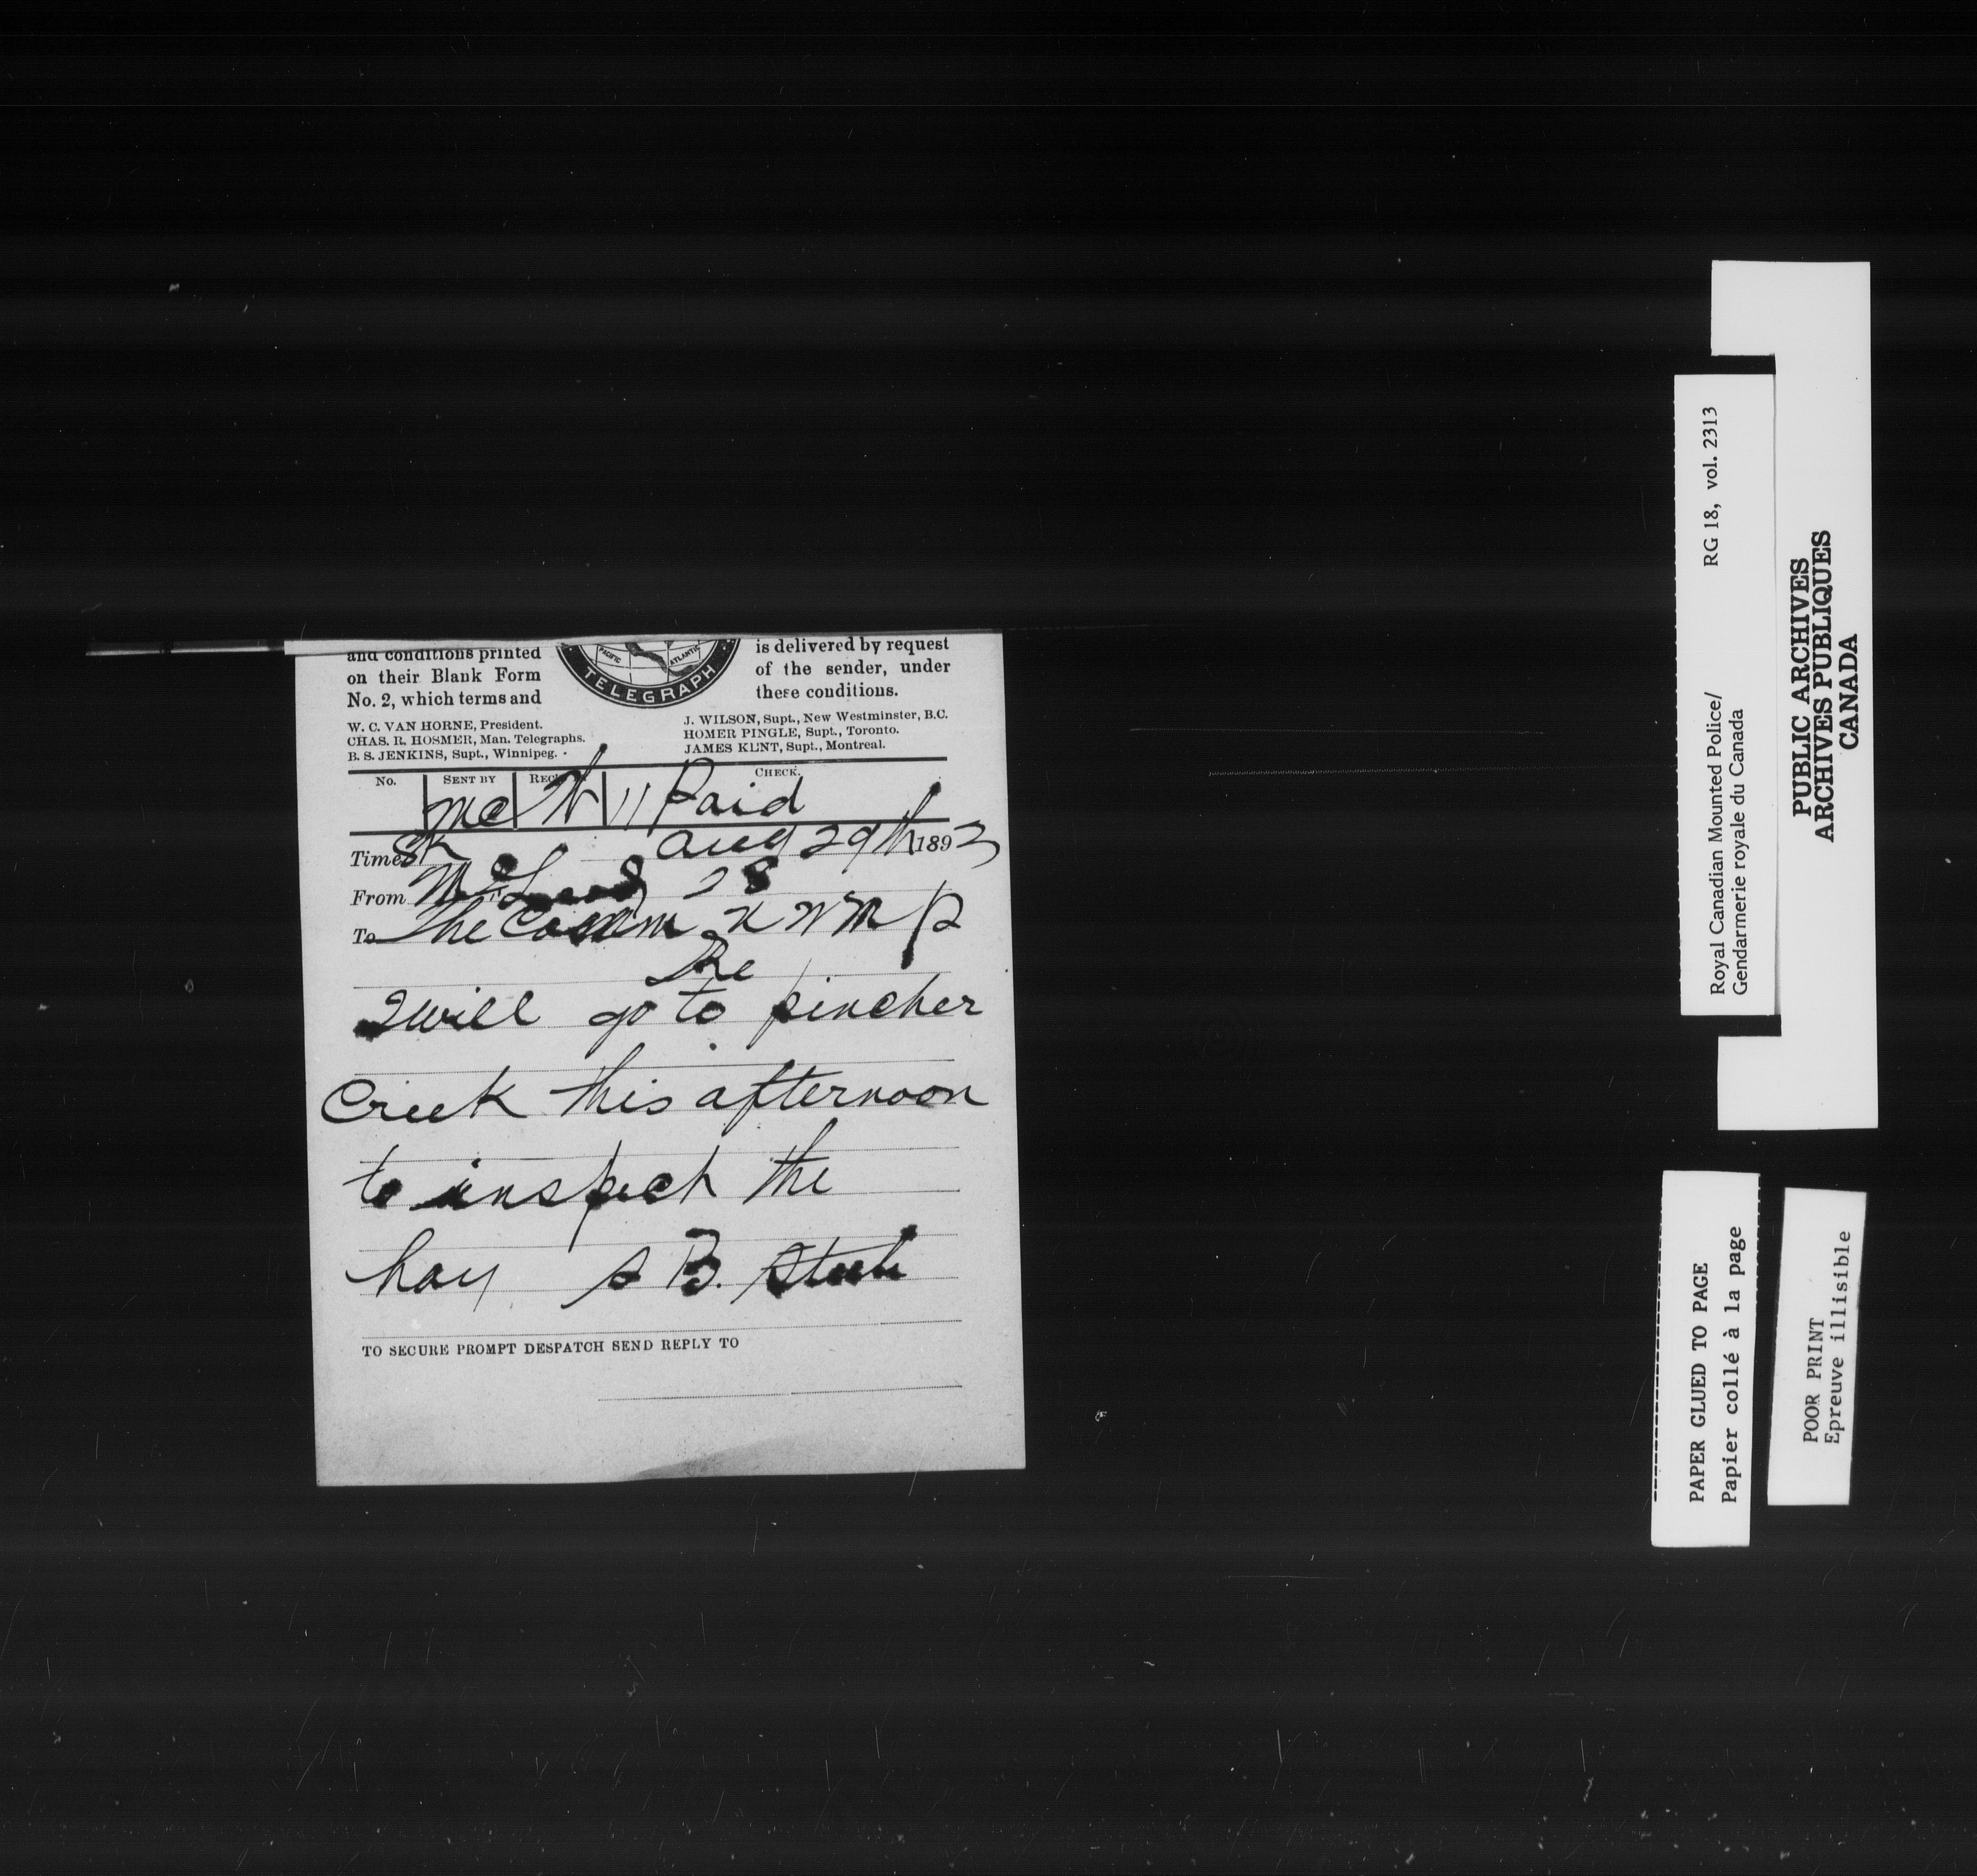 and conditions printed
on their Blank Form
No. 2, which terms and
PACIFIC
ATLANTIC
TELEGRAPH
is delivered by request
of the sender, under
these conditions.
W. C. VAN HORNE, President.
CHAS. R. HOSMER, Man. Telegraphs.
B. S. JENKINS, Supt., Winnipeg.
J. WILSON, Supt., New Westminster, B.C.
HOMER PINGLE, Supt., Toronto.
JAMES KENT, Supt., Montreal.
No. SENT BY REC'D CHECK.
Mc 11 Paid
Time Aug 29th 1893
From McLeod 28
To The Comm N W M P
I will go to pincher
Creek this afternoon
to inspect the
hay S B. Steele
TO SECURE PROMPT DESPATCH SEND REPLY TO
Royal Canadian Mounted Police/ RG 18, vol. 2313
Gendarmerie royale du Canada
PUBLIC ARCHIVES
ARCHIVES PUBLIQUES
CANADA
PAPER GLUED TO PAGE
Papier collé à la page
POOR PRINT
Epreuve illisible